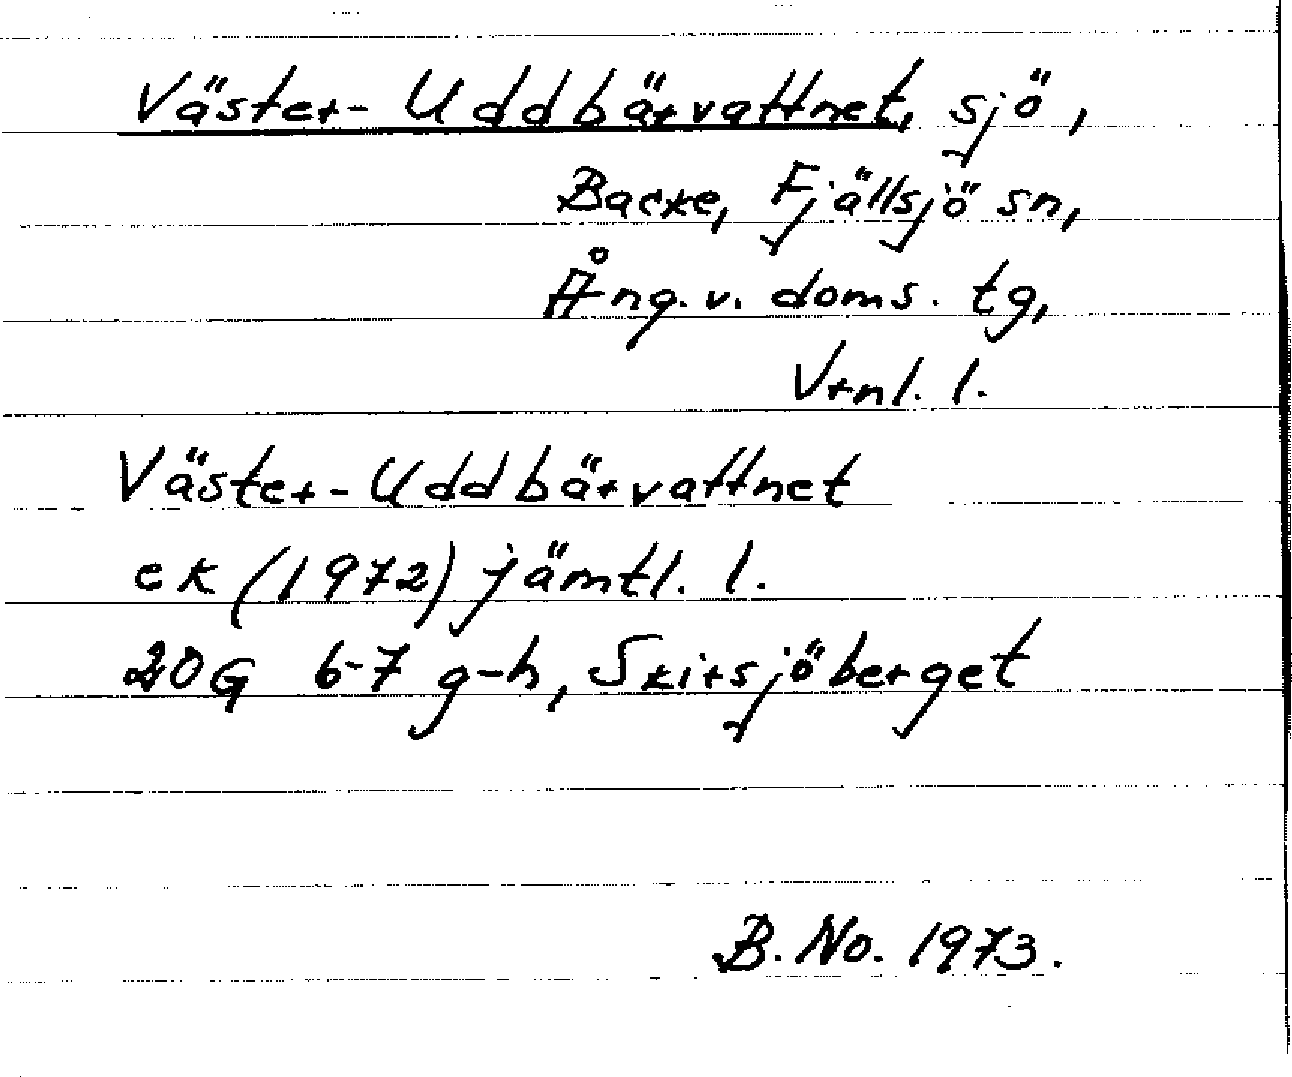 Väster-Uddbärvattnet, sjö,
Backe, Fjällsjö sn,
Ång. v. doms. tg,
Vrnl. l.
Väster-Uddbärvattnet
ek (1972) jämtl. l.
20G 6-7 g-h, Skirsjöberget
B. No. 1973.